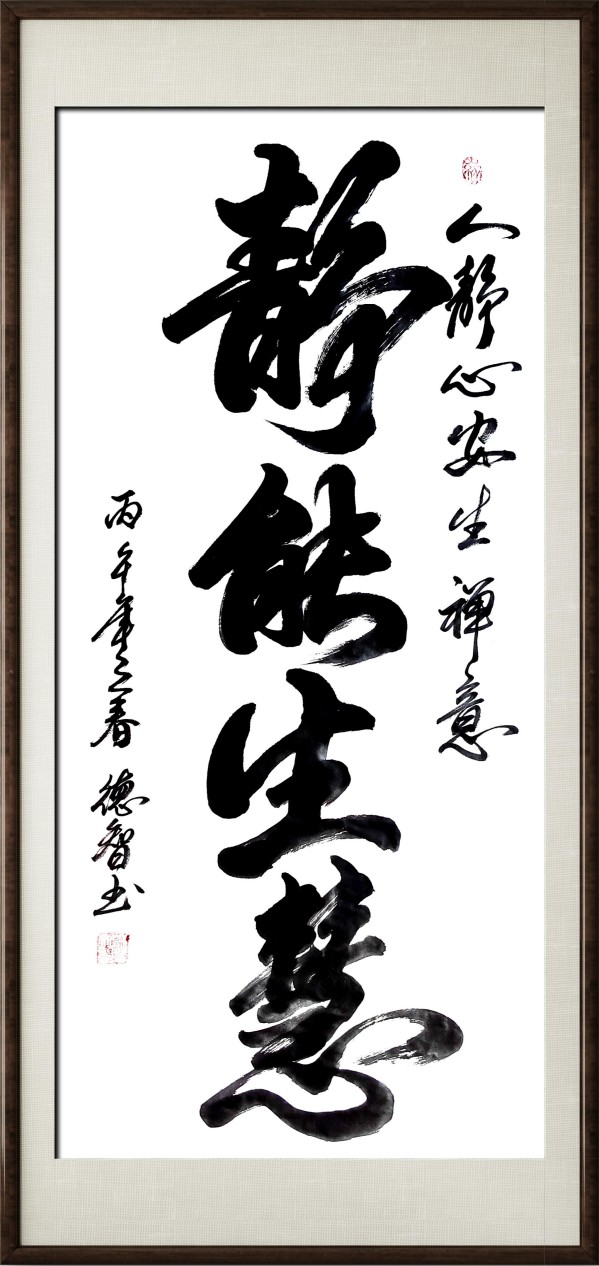 人静心安生禅意
静能生慧
丙午年之春 德智书